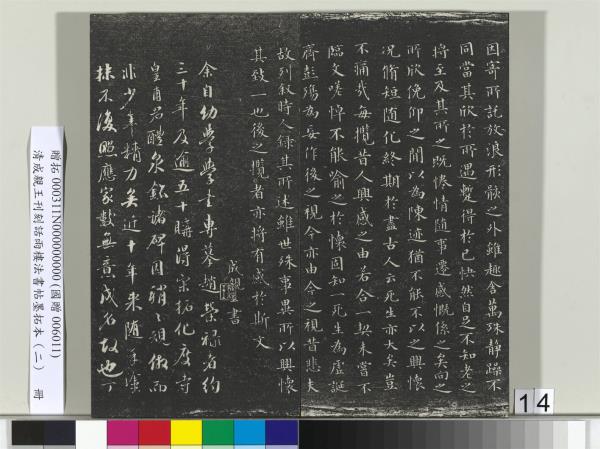 因寄所託放浪形骸之外雖趣舍萬殊靜躁不
同當其欣於所遇蹔得於己怏然自足不知老之
將至及其所之既惓情隨事遷感慨係之矣向之
所欣俛仰之閒以為陳迹猶不能不以之興懷
況脩短隨化終期於盡古人云死生亦大矣豈
不痛哉每攬昔人興感之由若合一契未嘗不
臨文嗟悼不能喻之於懷固知一死生為虛誕
齊彭殤為妄作後之視今亦由今之視昔悲夫
故列敘時人錄其所述雖世殊事異所以興懷
其致一也後之攬者亦將有感於斯文
成親王書
余自幼學學士專摹趙榮祿者約
三十年及逾五十購得宋拓化度寺
皇甫君醴泉銘諸碑因稍稍規倣而
非少年精力矣近十年來隨手塗
抹不復照應家數無意成名故也丁
贈拓 000311N000000000 (國贈 006011)
清成親王刊刻話雨樓法書帖墨拓本(二) 冊
14